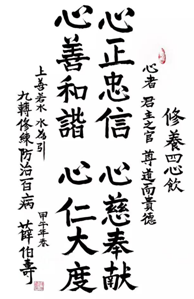 修養四心飲
心者 君主之官 尊道而貴德
心正忠信 心慈奉献
心善和諧 心仁大度
上善若水 水為引
九轉修練防治百病
甲午年春 薛伯壽